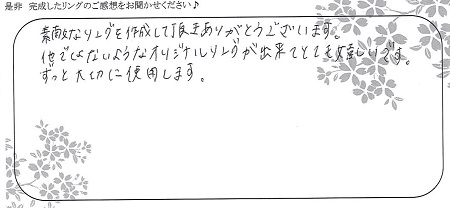 是非 完成したリングのご感想をお聞かせください♪
素敵なリングを作成して頂きありがとうございます。
他でびないようなオリジナルリングが出来てとても嬉しいです。
ずっと大切に使用します。